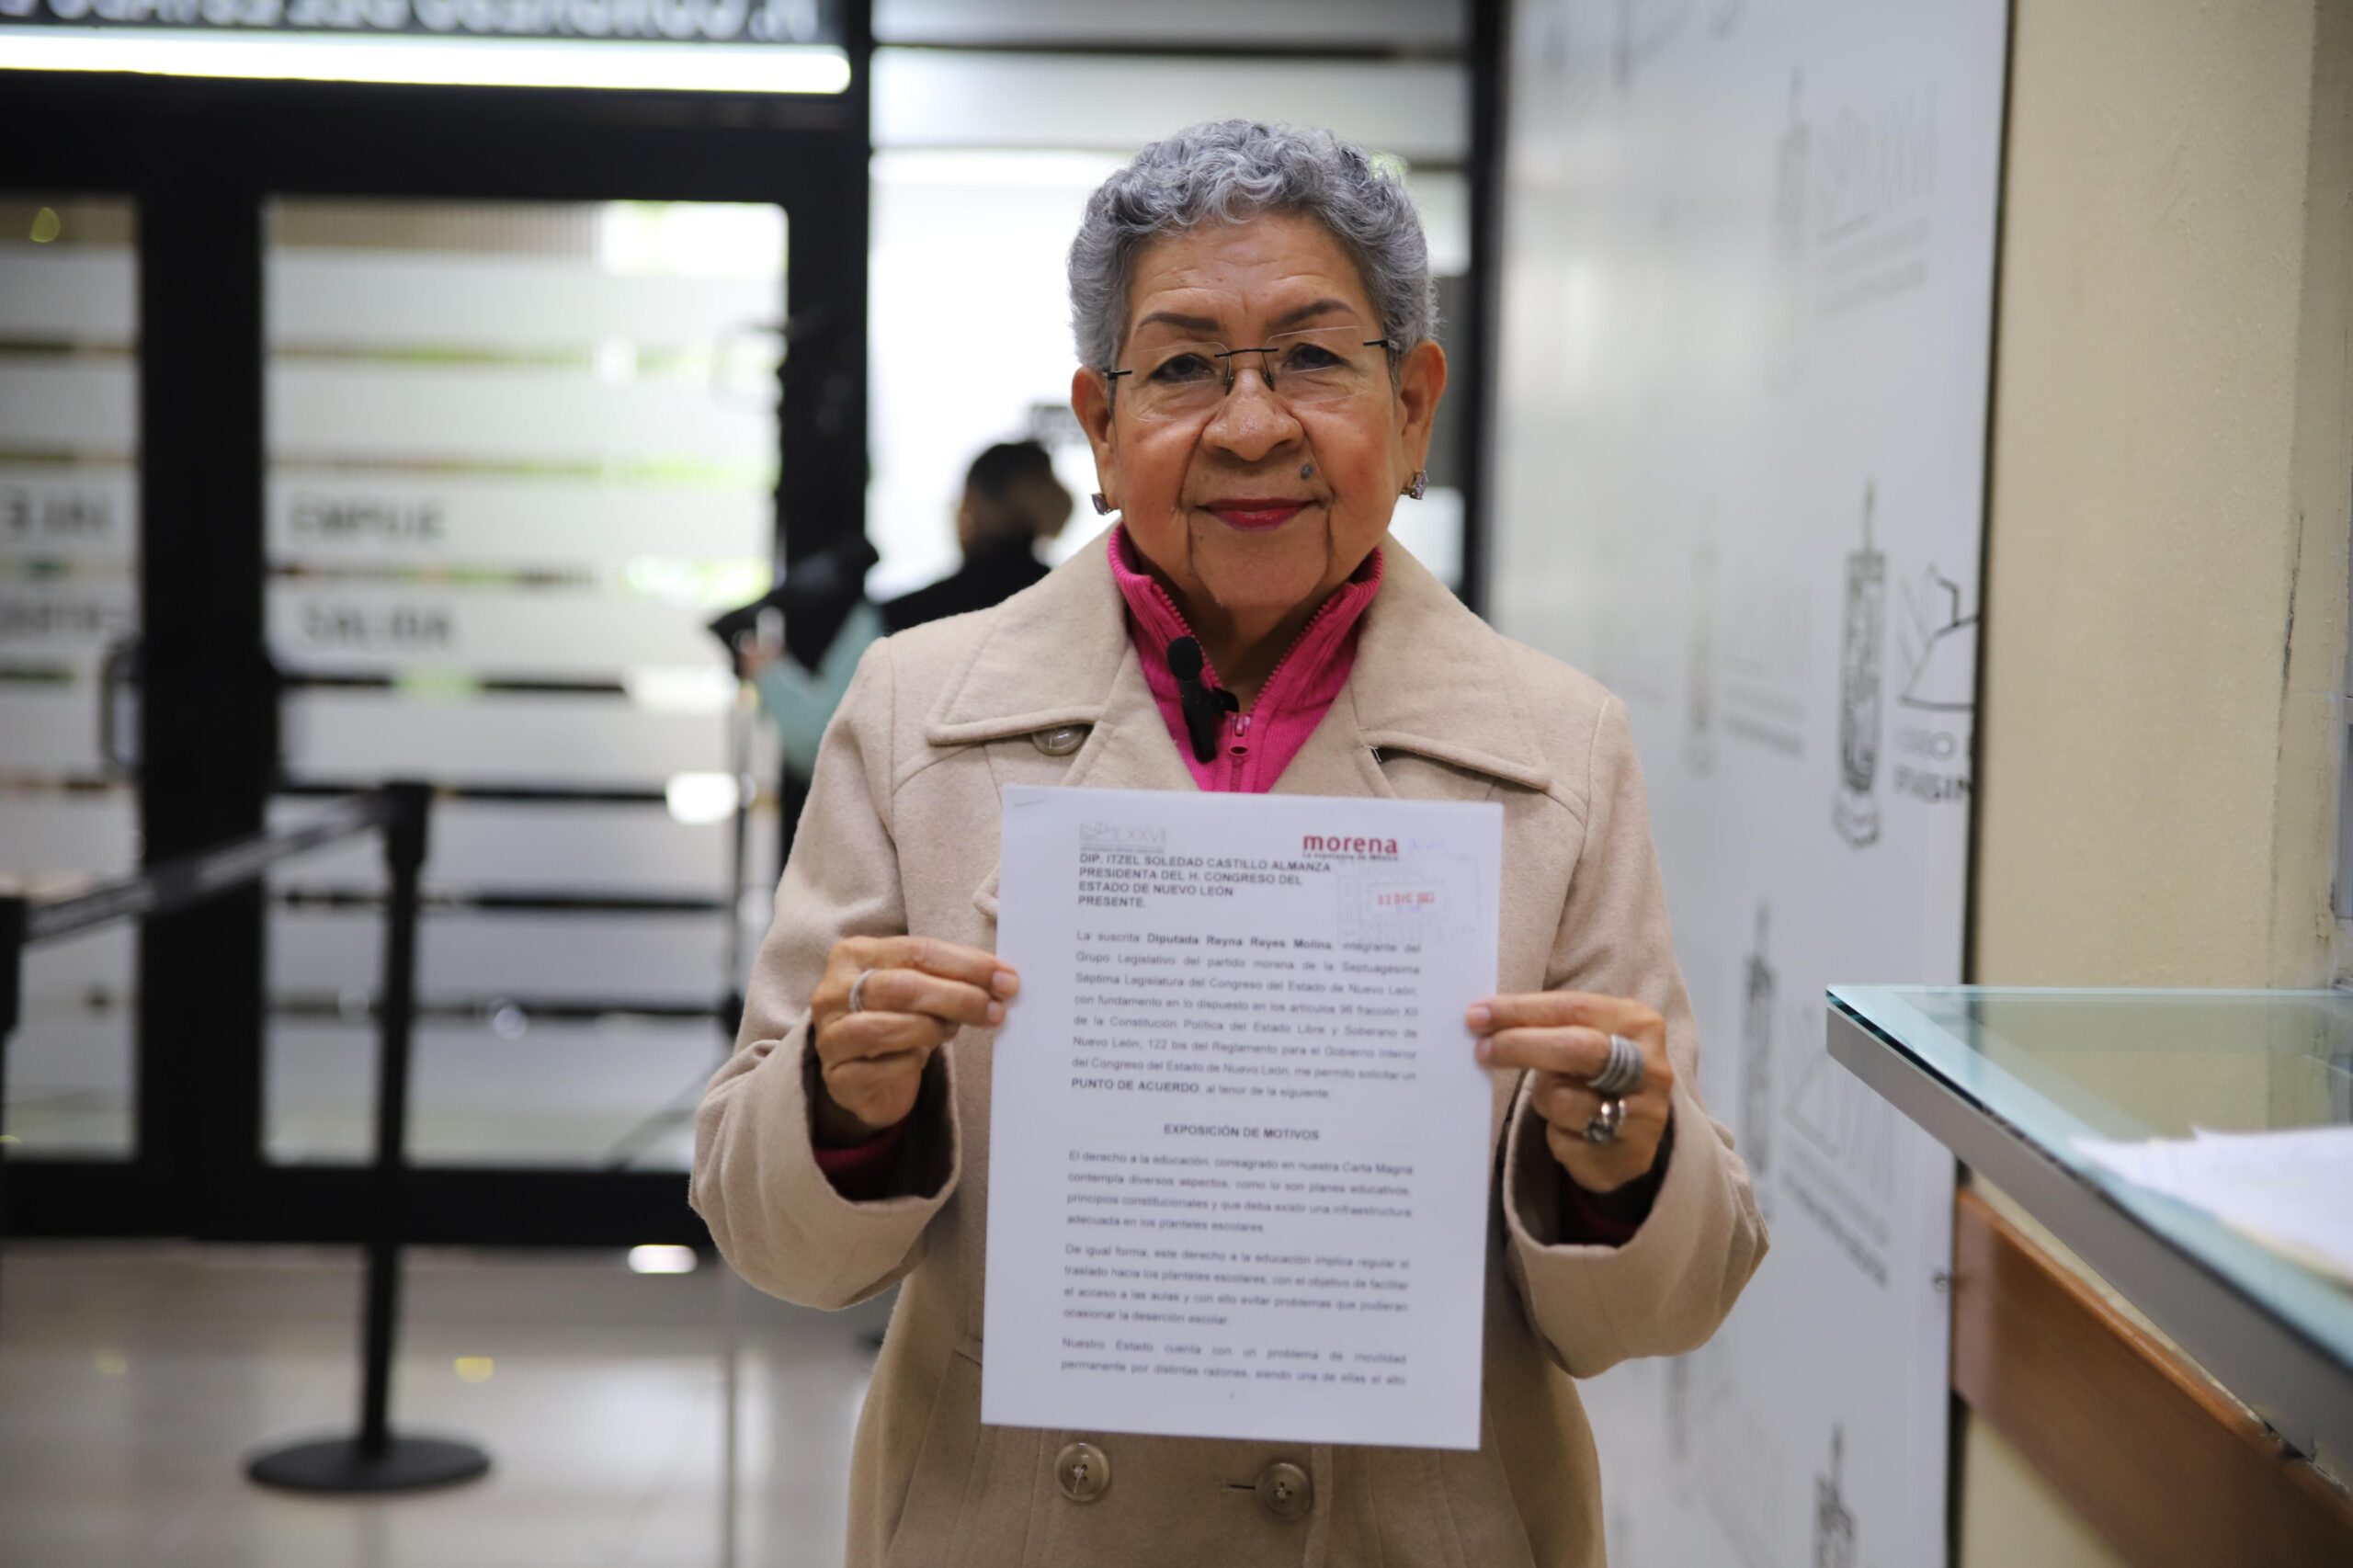 H. CONGRESO DEL ESTADO DE NUEVO L
EMPUJE
SALIDA
LXXVII
morena
La esperanza de México
DIP. ITZEL SOLEDAD CASTILLO ALMANZA
PRESIDENTA DEL H. CONGRESO DEL
ESTADO DE NUEVO LEÓN
PRESENTE.
La suscrita Diputada Reyna Reyes Molina, integrante del
Grupo Legislativo del partido morena de la Septuagésima
Séptima Legislatura del Congreso del Estado de Nuevo León,
con fundamento en lo dispuesto en los artículos 96 fracción XII
de la Constitución Política del Estado Libre y Soberano de
Nuevo León, 122 bis del Reglamento para el Gobierno Interior
del Congreso del Estado de Nuevo León, me permito solicitar un
PUNTO DE ACUERDO, al tenor de la siguiente:
EXPOSICIÓN DE MOTIVOS
El derecho a la educación, consagrado en nuestra Carta Magna
contempla diversos aspectos, como lo son planes educativos,
principios constitucionales y que deba existir una infraestructura
adecuada en los planteles escolares.
De igual forma, este derecho a la educación implica regular el
traslado hacia los planteles escolares, con el objetivo de facilitar
el acceso a las aulas y con ello evitar problemas que pudieran
ocasionar la deserción escolar.
Nuestro Estado cuenta con un problema de movilidad
permanente por distintas razones, siendo una de ellas el alto
1